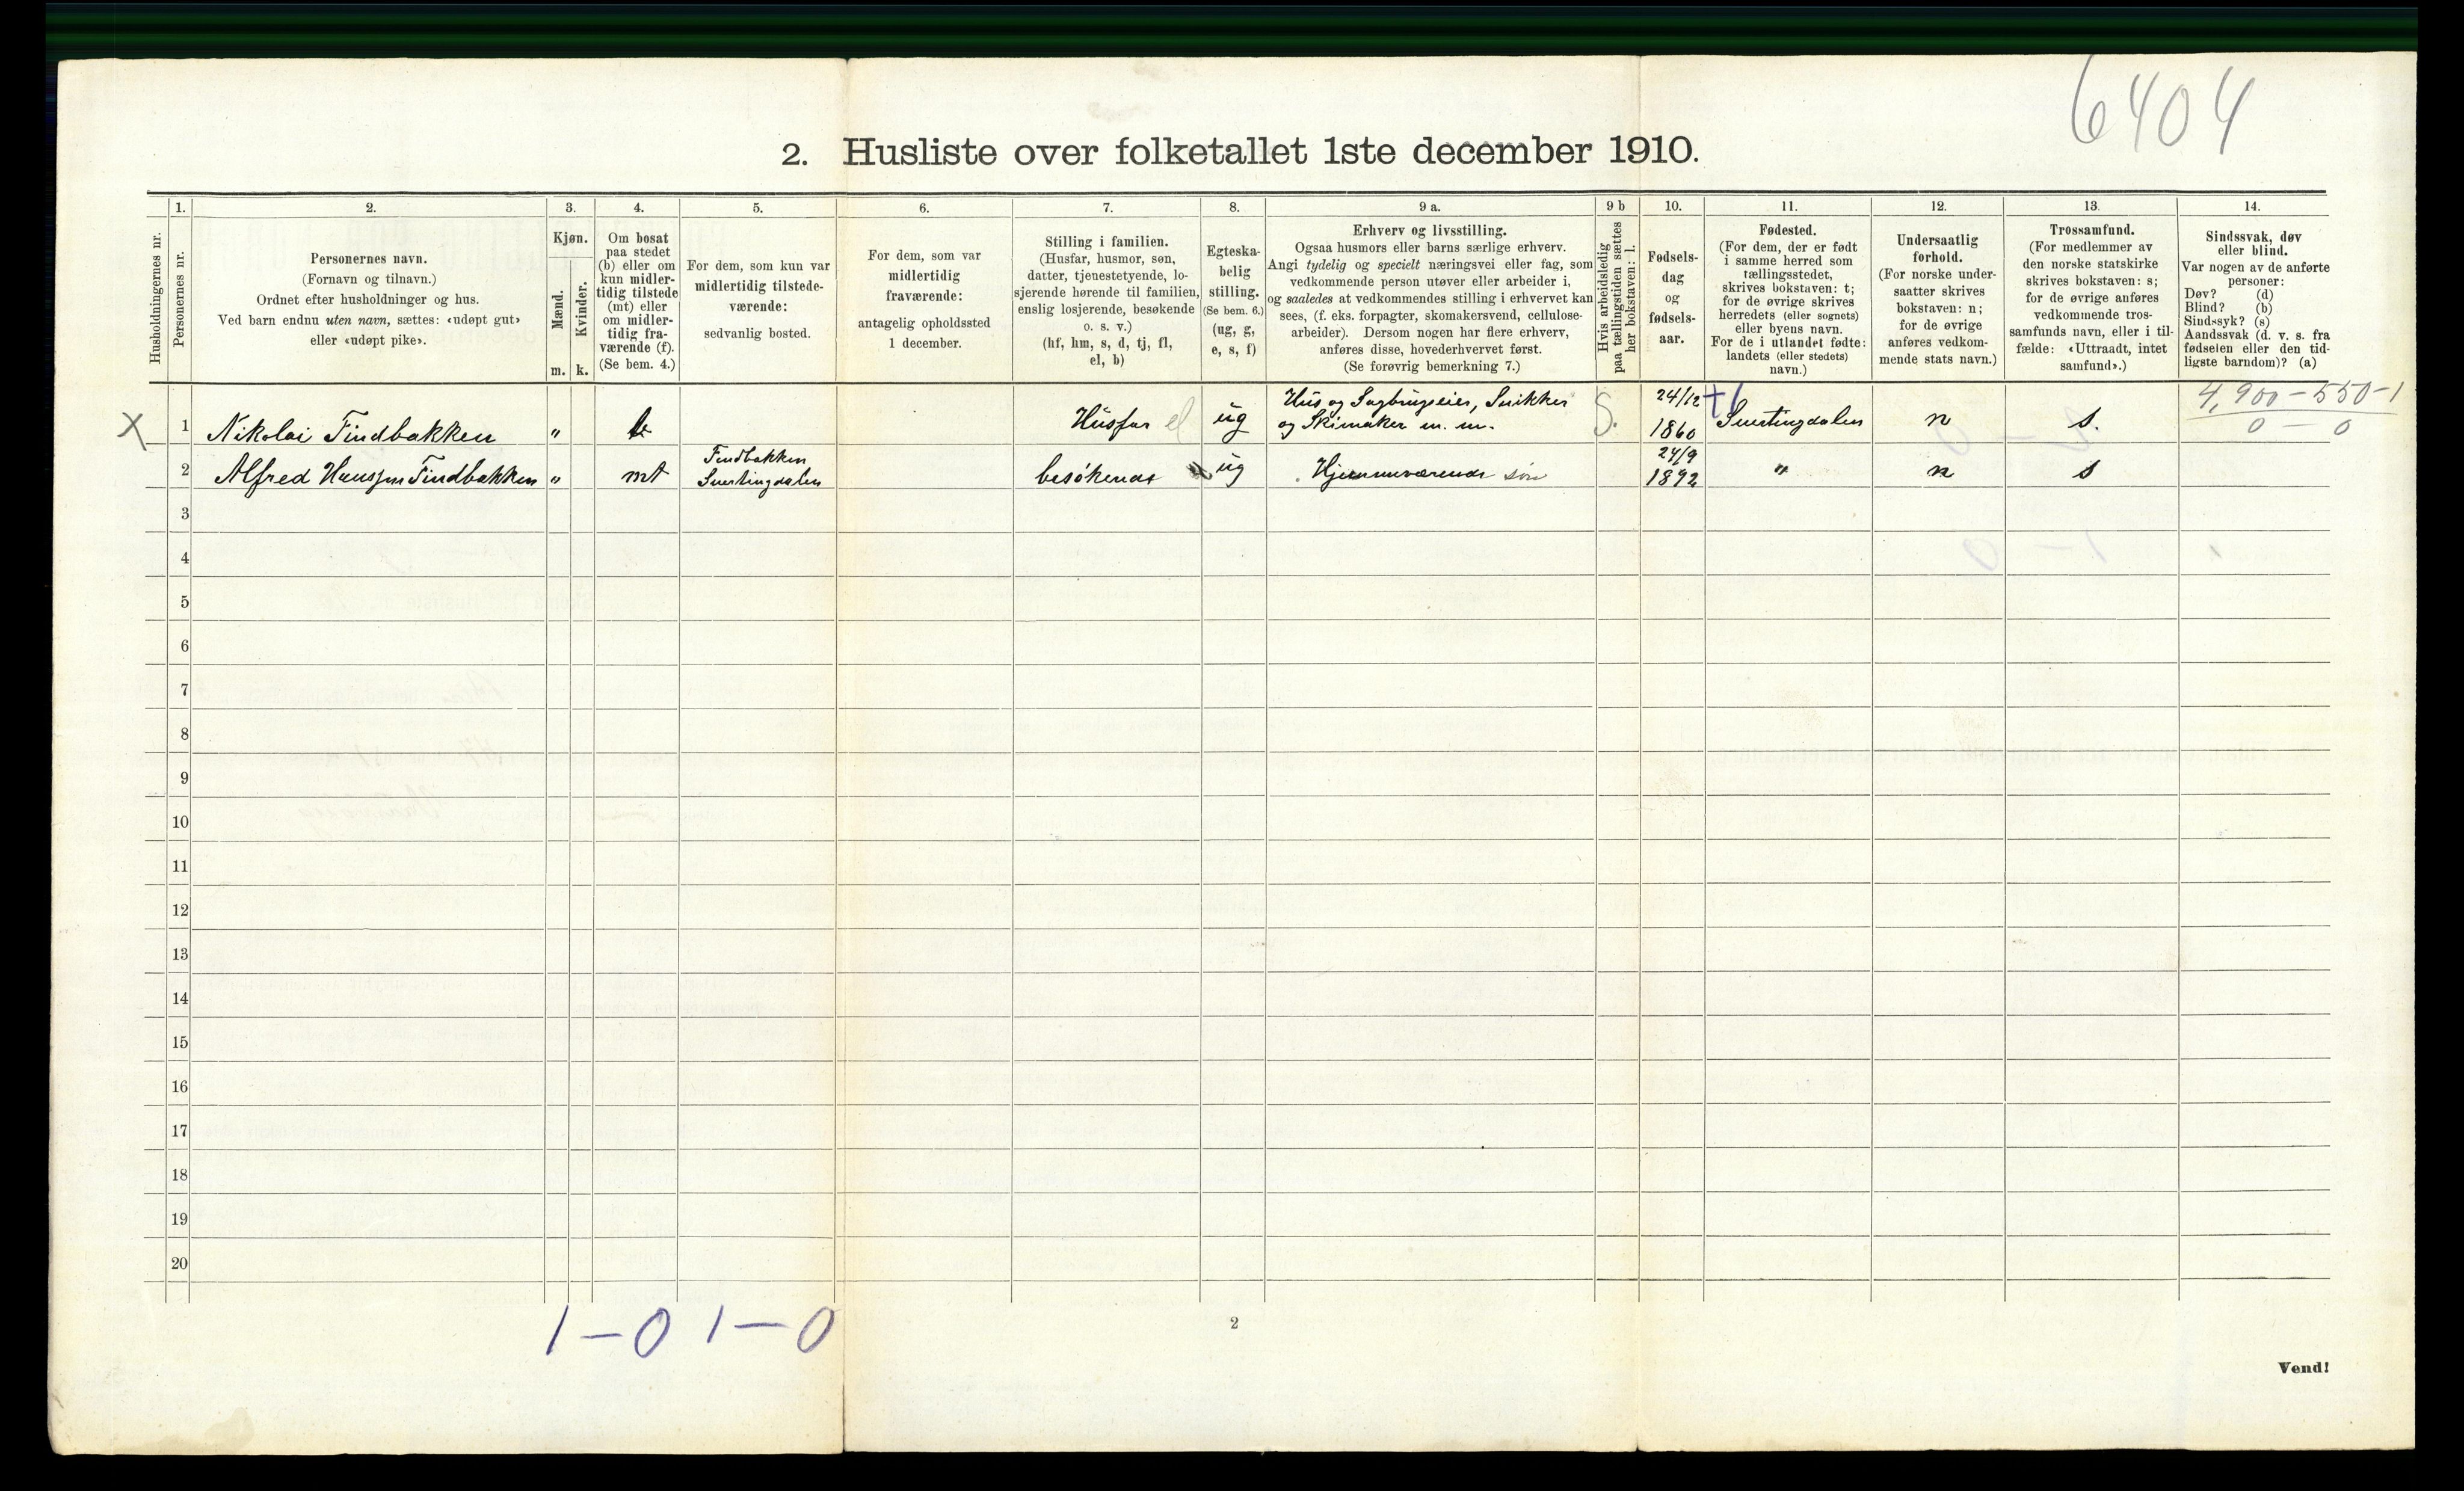 6404
2. Husliste over folketallet 1ste december 1910.
Husholdningernes nr.
1.
Personernes nr.
2.
Personernes navn.
(Fornavn og tilnavn.)
Ordnet efter husholdninger og hus.
Ved barn endnu uten navn, sættes: «udøpt gut»
eller «udøpt pike».
3.
Kjøn.
Mænd.
Kvinder.
m. k.
4.
Om bosat
paa stedet
(b) eller om
kun midler-
tidig tilstede
(mt) eller
om midler-
tidig fra-
værende (f).
(Se bem. 4.)
5.
For dem, som kun var
midlertidig tilstede-
værende:
sedvanlig bosted.
6.
For dem, som var
midlertidig
fraværende:
antagelig opholdssted
1 december.
7.
Stilling i familien.
(Husfar, husmor, søn,
datter, tjenestetyende, lo-
sjerende hørende til familien,
enslig losjerende, besøkende
o. s. v.)
(hf, hm, s, d, tj, fl,
el, b)
8.
Egteska-
belig
stilling.
(Se bem. 6.)
(ug, g,
e, s, f)
9 a.
Erhverv og livsstilling.
Ogsaa husmors eller barns særlige erhverv.
Angi tydelig og specielt næringsvei eller fag, som
vedkommende person utøver eller arbeider i,
og saaledes at vedkommendes stilling i erhvervet kan
sees, (f. eks. forpagter, skomakersvend, cellulose-
arbeider). Dersom nogen har flere erhverv,
anføres disse, hovederhvervet først.
(Se forøvrig bemerkning 7.)
9 b
Hvis arbeidsledig
paa tællingstiden sættes
her bokstaven: l.
10.
Fødsels-
dag
og
fødsels-
aar.
11.
Fødested.
(For dem, der er født
i samme herred som
tællingsstedet,
skrives bokstaven: t;
for de øvrige skrives
herredets (eller sognets)
eller byens navn.
For de i utlandet fødte:
landets (eller stedets)
navn.)
12.
Undersaatlig
forhold.
(For norske under-
saatter skrives
bokstaven: n;
for de øvrige
anføres vedkom-
mende stats navn.)
13.
Trossamfund.
(For medlemmer av
den norske statskirke
skrives bokstaven: s;
for de øvrige anføres
vedkommende tros-
samfunds navn, eller i til-
fælde: «Uttraadt, intet
samfund».)
14.
Sindssvak, døv
eller blind.
Var nogen av de anførte
personer:
Døv? (d)
Blind? (b)
Sindssyk? (s)
Aandssvak (d. v. s. fra
fødselen eller den tid-
ligste barndom)? (a)
X 1 Nikolai Findbakken " b Husfar el ug Hus og Sagbrugseier, Snikker
og Skimaker m. m. S. 24/12
1860 +1 Snertingdalen n s. 4,900-550-1
0 — 0
2 Alfred Hanssen Findbakken " mt Findbakken
Snertingdalen besøkende ug Hjemmeværende søn 24/9
1892 " n s
3
4
5
6
7
8
9
10
11
12
13
14
15
16
17
18
19
20
1-0 1-0
2
Vend!